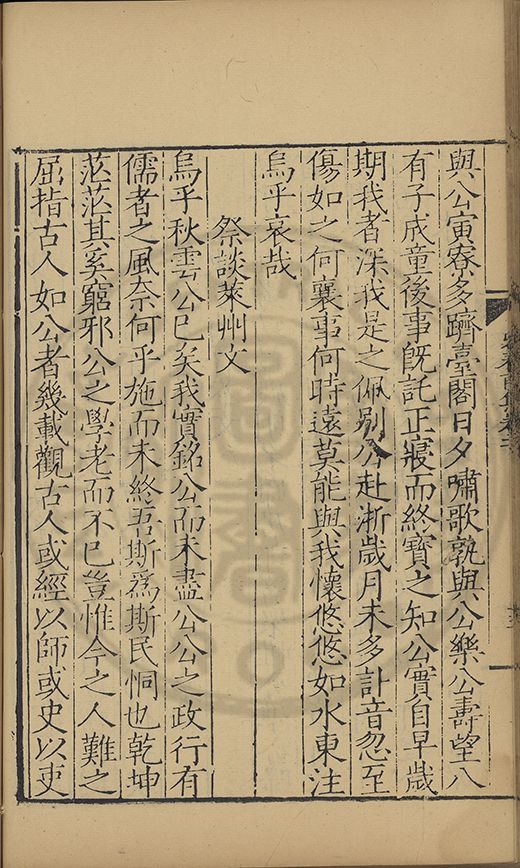 與公寅寮多躋臺閣日夕嘯歌孰與公樂公壽望八
有子成童後事旣託正寢而終寶之知公實自早歲
期我者深我是之佩別公赴浙歲月未多訃音忽至
傷如之何襄事何時遠莫能與我懷悠悠如水東注
烏乎哀哉
祭談萊州文
烏乎秋雲公已矣我實銘公而未盡公公之政行有
儒者之風奈何乎施而未終吾斯爲斯民恫也乾坤
茫茫其奚窮邪公之學老而不已豈惟今之人難之
屈指古人如公者幾載觀古人或經以師或史以吏